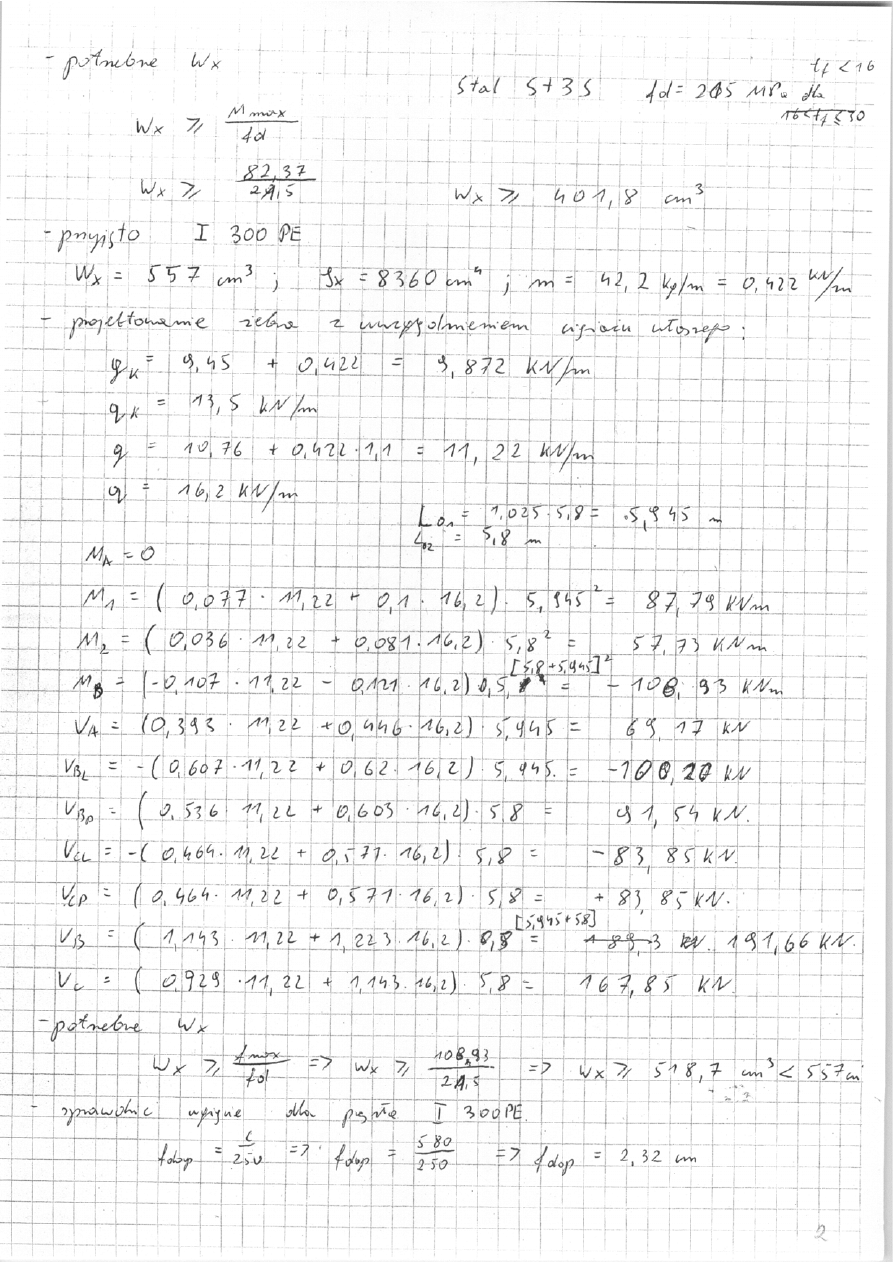 - potrzebne Wx
tf < 16
Stal St3S fd = 215 MPa dla
16<tf≤30
Wx ≥ Mmax/fd
Wx ≥ 82,37/21,5 Wx ≥ 401,8 cm³
- przyjęto I 300 PE
Wx = 557 cm³ ; Jx = 8360 cm⁴ ; m = 42,2 kg/m = 0,422 kN/m
- projektowanie żebra z uwzględnieniem ciężaru własnego:
gk = 9,45 + 0,422 = 9,872 kN/m
qk = 13,5 kN/m
g = 10,76 + 0,422·1,1 = 11,22 kN/m
q = 16,2 kN/m
Lo1 = 1,025·5,8 = 5,945 m
Lo2 = 5,8 m
MA = 0
M1 = ( 0,077 · 11,22 + 0,1 · 16,2) · 5,945² = 87,79 kNm
M2 = ( 0,036 · 11,22 + 0,081·16,2) · 5,8² = 57,73 kNm
[5,8+5,945]²
MB = (-0,107 · 11,22 - 0,121 · 16,2) 0,5 = - 108,93 kNm
VA = (0,393 · 11,22 + 0,446·16,2) · 5,945 = 69,17 kN
VBL = -( 0,607·11,22 + 0,62·16,2) · 5,945 = -100,20 kN
VBP = ( 0,536 11,22 + 0,603 · 16,2) · 5,8 = 91,54 kN.
VCL = -( 0,464·11,22 + 0,571·16,2) · 5,8 = - 83,85 kN.
VCP = ( 0,464·11,22 + 0,571·16,2) · 5,8 = + 83,85 kN.
[5,945+5,8]
VB = ( 1,143 · 11,22 + 1,223·16,2) · 0,5 = 189,3 kN. 191,66 kN.
VC = ( 0,929 · 11,22 + 1,143·16,2) · 5,8 = 167,85 kN.
- potrzebne Wx
Wx ≥ fmax/fd => Wx ≥ 108,93/21,5 => Wx ≥ 518,7 cm³ < 557 cm
- sprawdzić ugięcie dla przęsła I 300PE.
fdop = L/250 => fdop = 580/250 => fdop = 2,32 cm
2